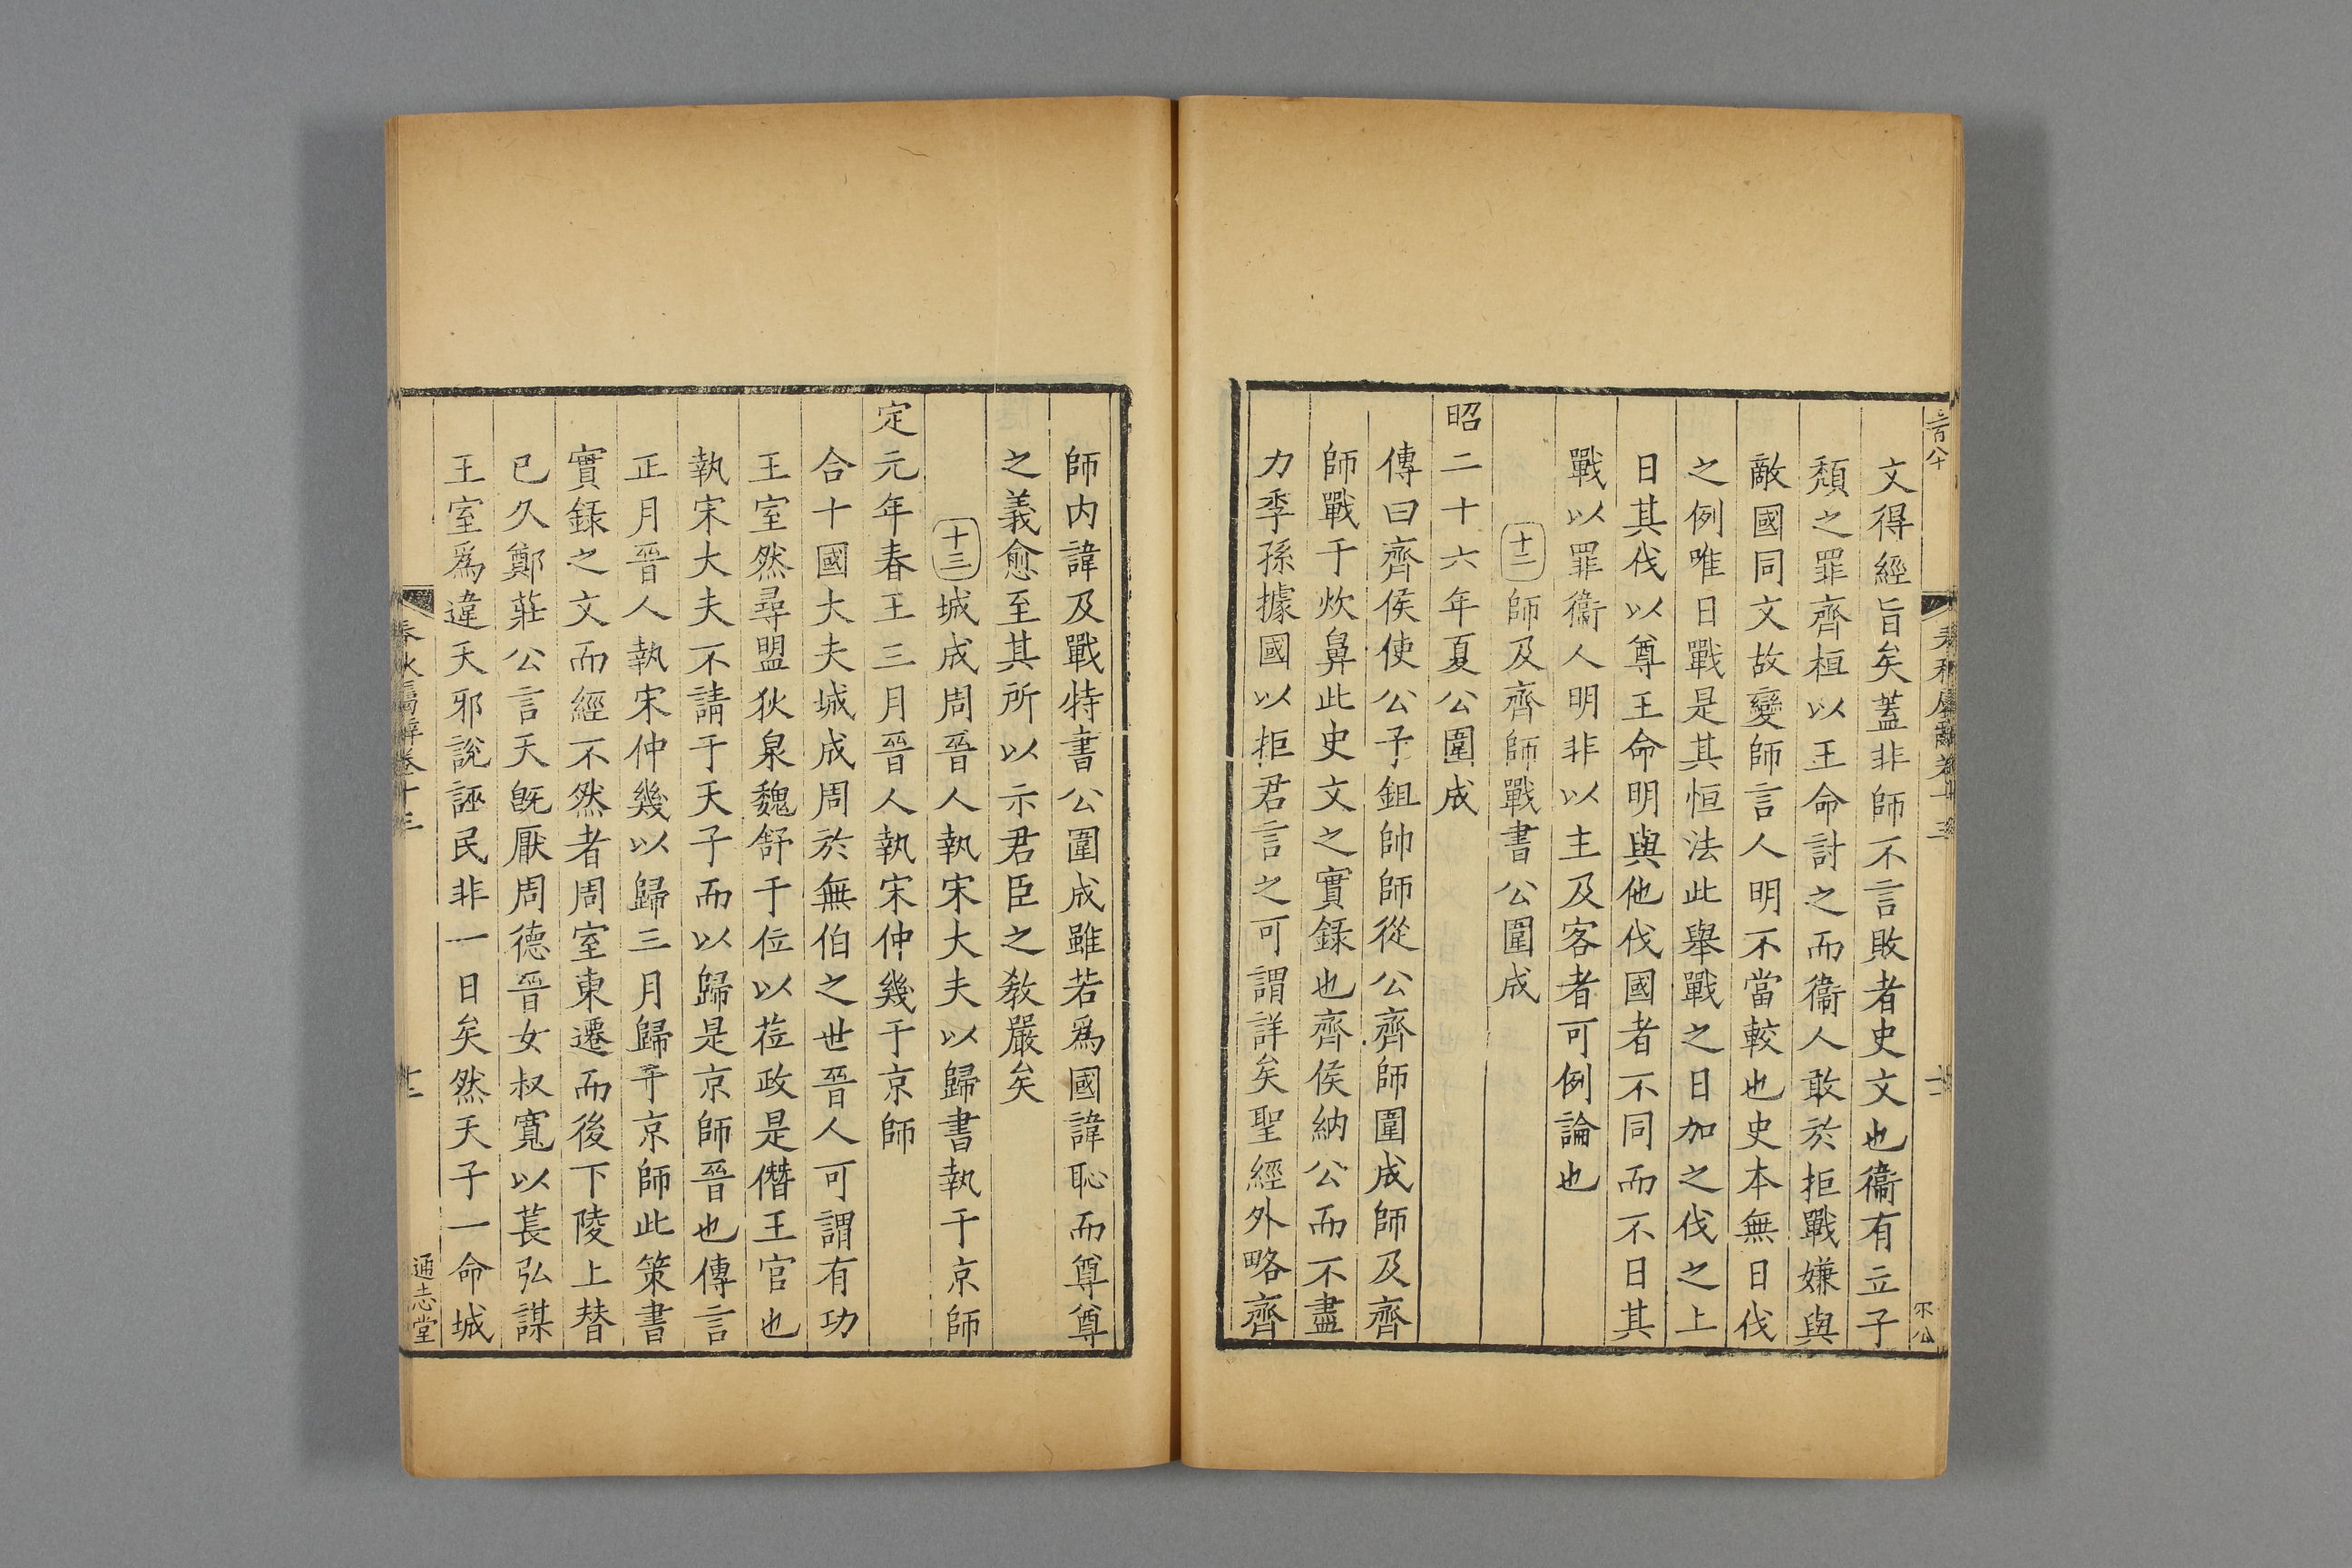 文得經旨矣蓋非師不言敗者史文也衞有立子
頹之罪齊桓以王命討之而衞人敢於拒戰嫌與
敵國同文故變師言人明不當較也史本無日伐
之例唯日戰是其恒法此舉戰之日加之伐之上
日其伐以尊王命明與他伐國者不同而不日其
戰以罪衞人明非以主及客者可例論也
十二師及齊師戰書公圍成
昭二十六年夏公圍成
傳曰齊侯使公子鉏帥師從公齊師圍成師及齊
師戰于炊鼻此史文之實録也齊侯納公而不盡
力季孫據國以拒君言之可謂詳矣聖經外略齊
師内諱及戰特書公圍成雖若爲國諱恥而尊尊
之義愈至其所以示君臣之敎嚴矣
十三城成周晉人執宋大夫以歸書執于京師
定元年春王三月晉人執宋仲幾于京師
合十國大夫城成周於無伯之世晉人可謂有功
王室然尋盟狄泉魏舒于位以莅政是僭王官也
執宋大夫不請于天子而以歸是京師晉也傳言
正月晉人執宋仲幾以歸三月歸于京師此策書
實録之文而經不然者周室東遷而後下陵上替
已久鄭莊公言天旣厭周德晉女叔寬以萇弘謀
王室爲違天邪說誣民非一日矣然天子一命城
春秋屬辭卷十三
十二
通志堂